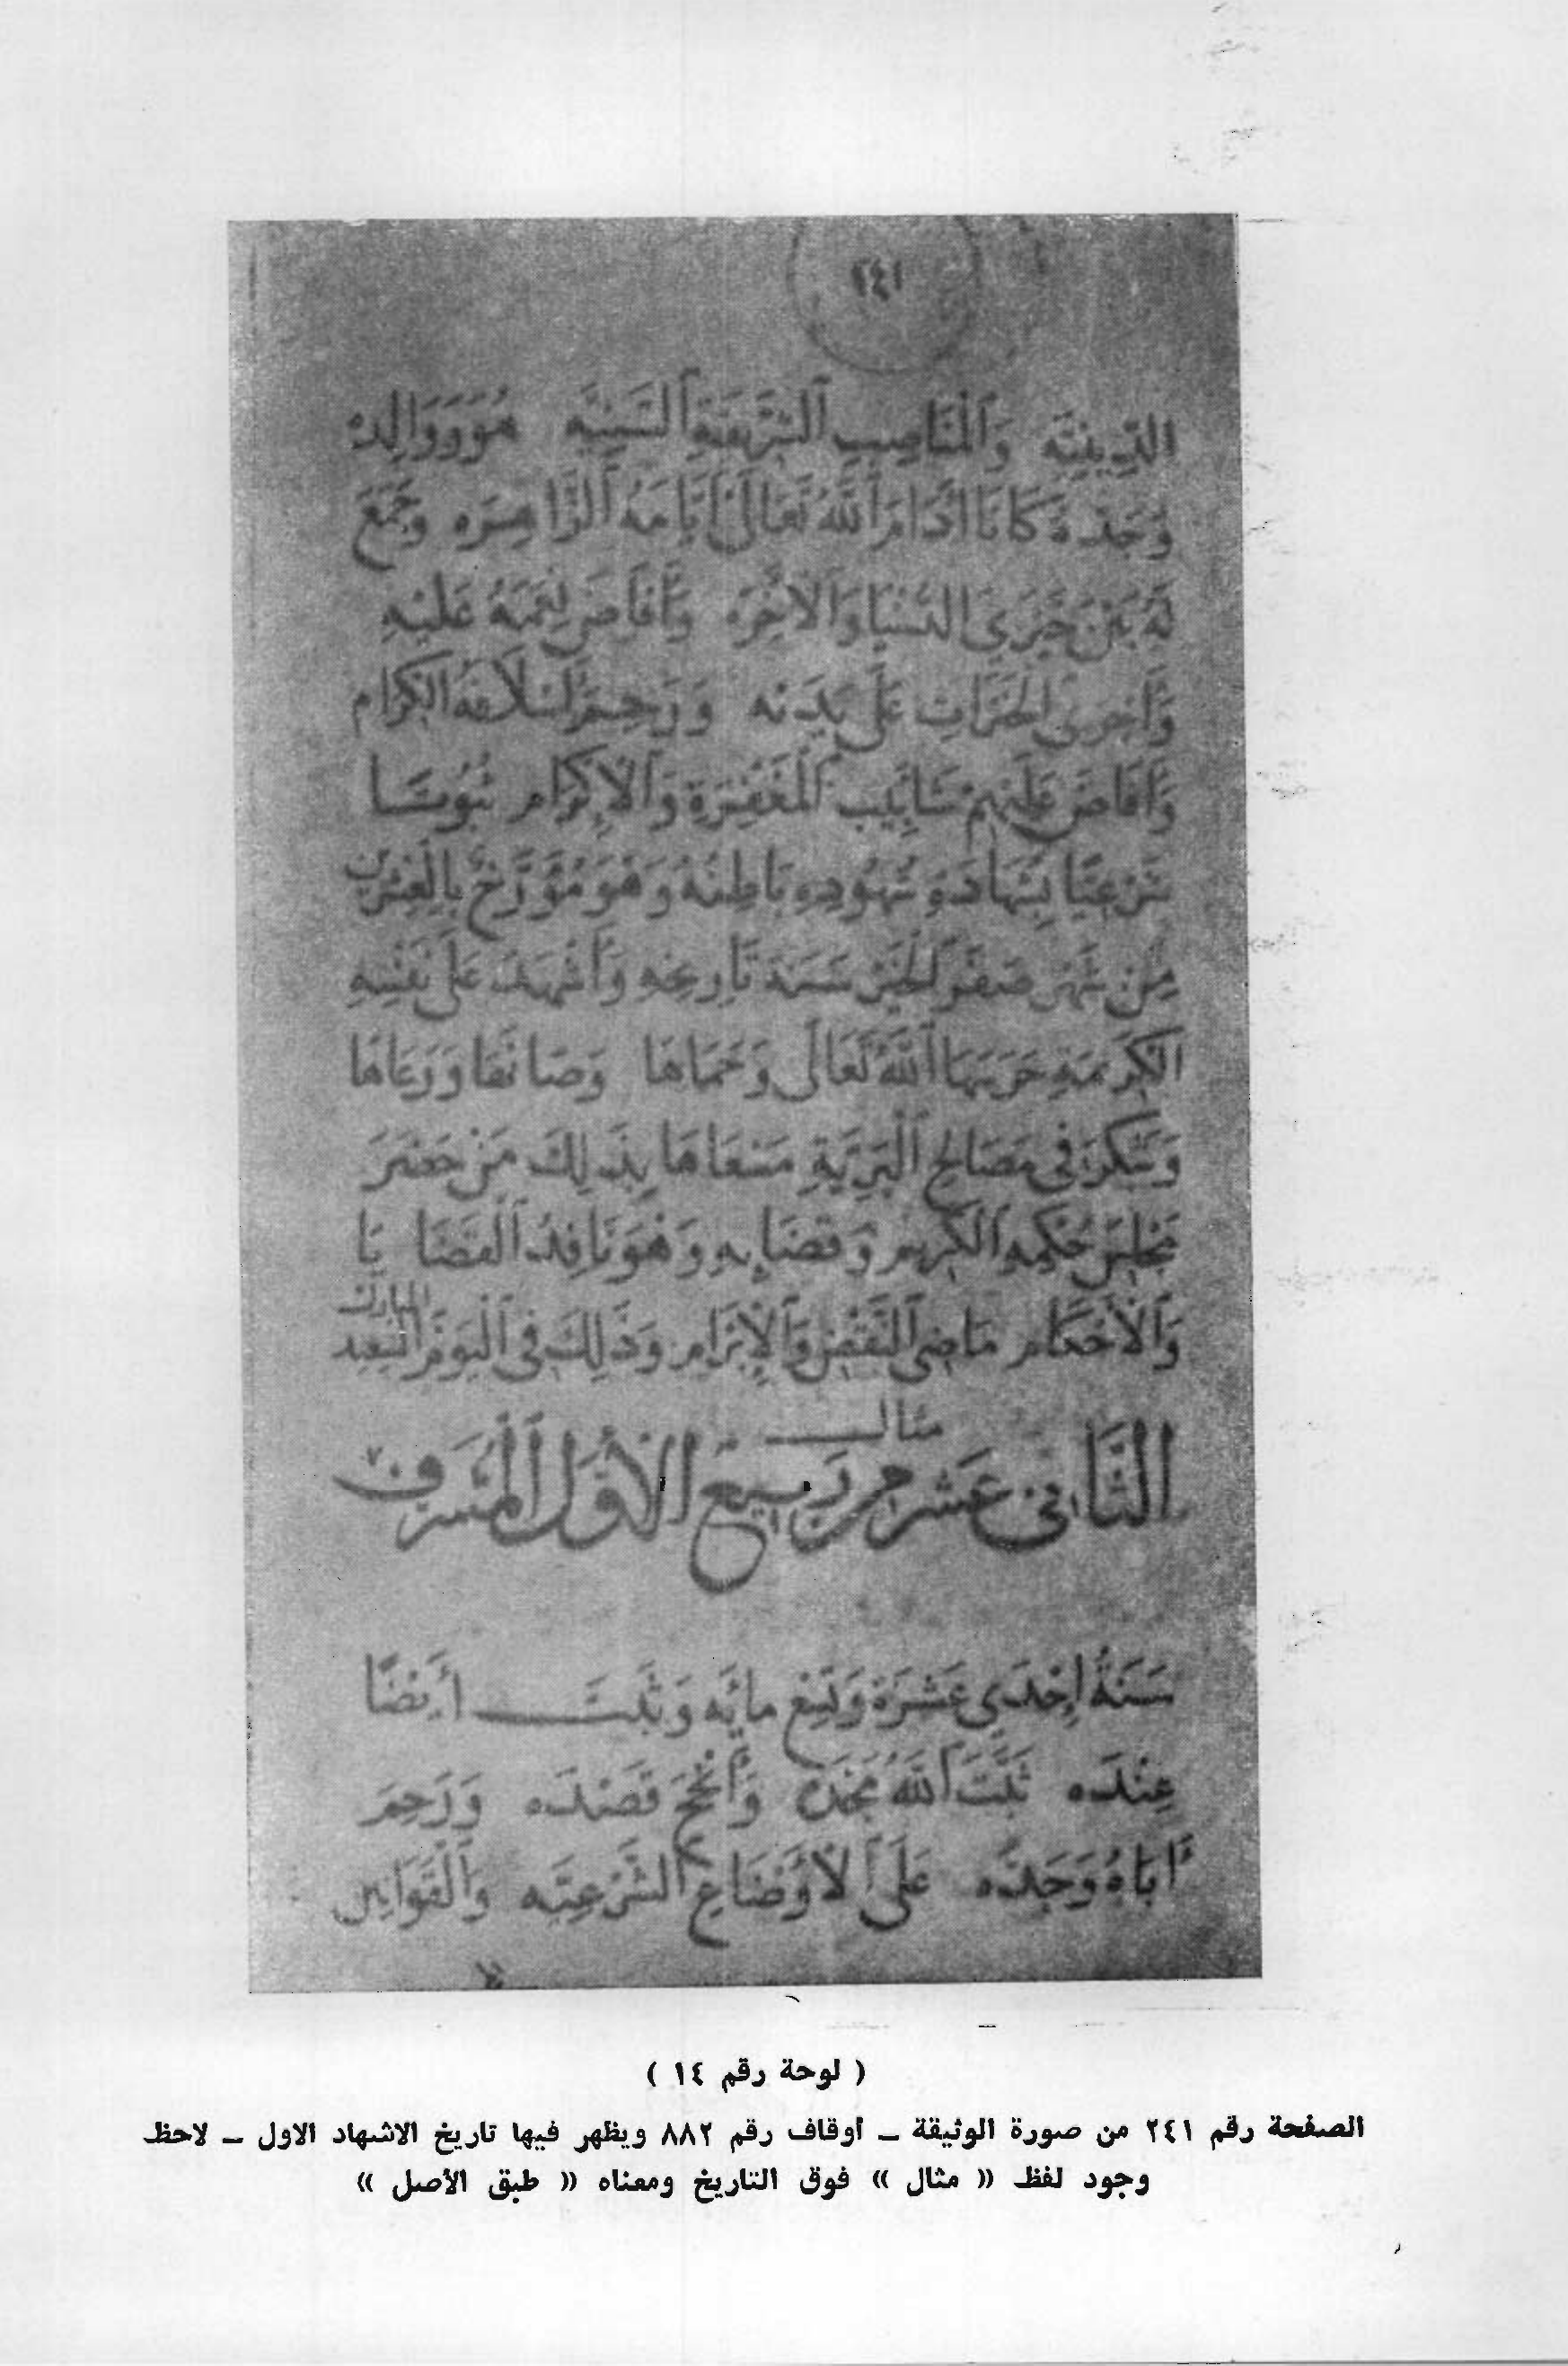 ٢٤١
الدِّينِيَّه وَالْمَنَاصِبِ الشَّرِيفَةِ السَّنِيَّه هُوَ وَوَالِده
وَجَدّه كَانَا أَدَامَ اللَّهُ تَعَالَى أَيَّامَهُ الزَّاهِرَه وَجَمَعَ
لَهُ بَيْنَ خَيْرَيِ الدُّنْيَا وَالْآخِرَه وَأَفَاضَ نِعَمَهُ عَلَيْهِ
وَأَجْرَى الْخَيْرَاتِ عَلَى يَدَيْه وَرَحِمَ أَسْلَافَهُ الْكِرَام
وَأَفَاضَ عَلَيْهِمْ شَآبِيبَ الْمَغْفِرَةِ وَالْإِكْرَام ثُبُوتًا
شَرْعِيًّا بِشَهَادَةِ شُهُودِهِ بَاطِنَهُ وَهُوَ مُؤَرَّخٌ بِالْعِشْرِين
مِنْ شَهْرِ صَفَرِ الْخَيْرِ سَنَةَ تَارِيخِهِ وَأَشْهَدَ عَلَى نَفْسِهِ
الْكَرِيمَةِ حَرَسَهَا اللَّهُ تَعَالَى وَحَمَاهَا وَصَانَهَا وَرَعَاهَا
وَشَكَرَ فِي مَصَالِحِ الْبَرِيَّةِ مَسْعَاهَا بِذَلِكَ مَنْ حَضَرَ
مَجْلِسَ حُكْمِهِ الْكَرِيمِ وَقَضَايِهِ وَهُوَ نَافِذُ الْقَضَايَا
وَالْأَحْكَامِ مَاضِي النَّقْضِ وَالْإِبْرَامِ وَذَلِكَ فِي الْيَوْمِ السَّعِيد المبارك
مثال
الثَّانِي عَشَر مِن رَبِيعِ الْأَوَّلِ الْمُشَرَّف
سَنَةَ إِحْدَى عَشَرَة وَتِسْعِ مائَه وَثَبَتَ أَيْضًا
عِنْدَه ثَبَّتَ اللَّهُ مَجْدَه وَأَنْجَحَ قَصْدَه وَرَحِمَ
أَبَاهُ وَجَدَّه عَلَى الْأَوْضَاعِ الشَّرْعِيَّه وَالْقَوَانِين
( لوحة رقم ١٤ )
الصفحة رقم ٢٤١ من صورة الوثيقة – أوقاف رقم ٨٨٢ ويظهر فيها تاريخ الاشهاد الاول – لاحظ
وجود لفظ « مثال » فوق التاريخ ومعناه « طبق الأصل »